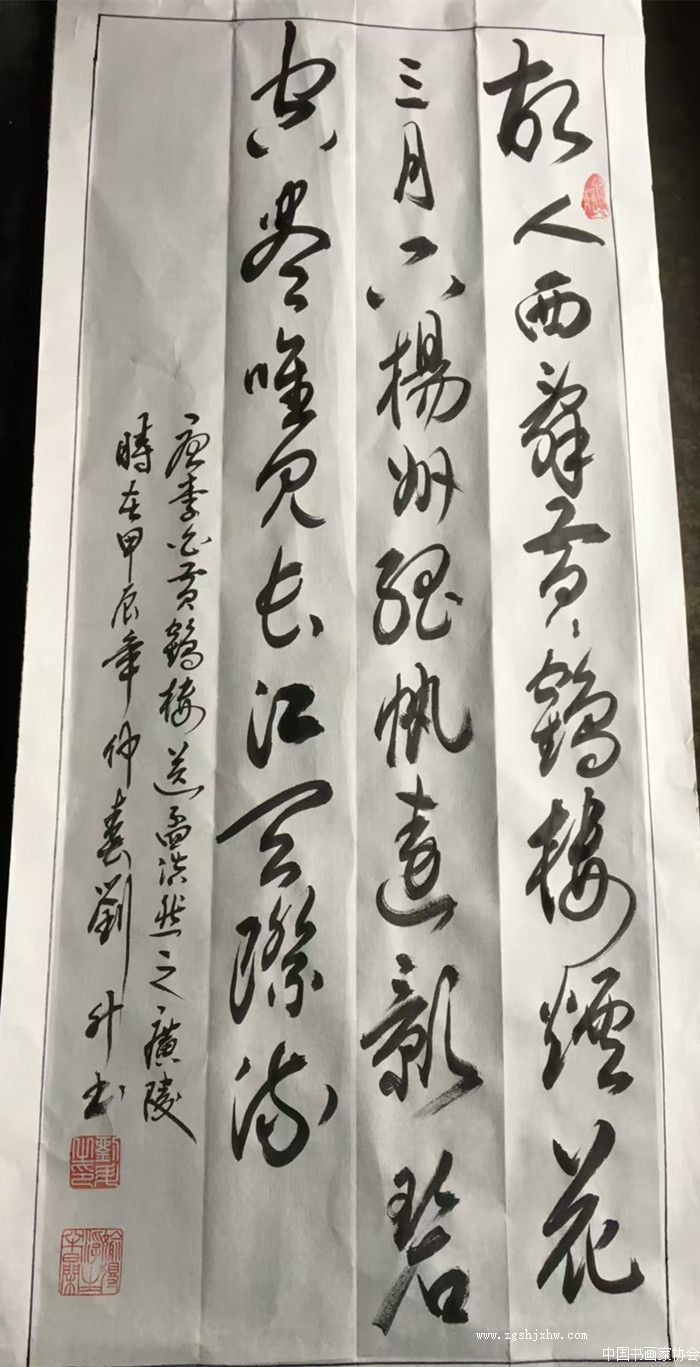 故人西辭黄鶴樓煙花
三月下楊州孤帆遠影碧
空尽唯見長江天際流
唐李白黄鶴樓送孟浩然之廣陵
時在甲辰年仲春劉升書
劉升之印
www.zgshjzhw.com
中国书画家协会